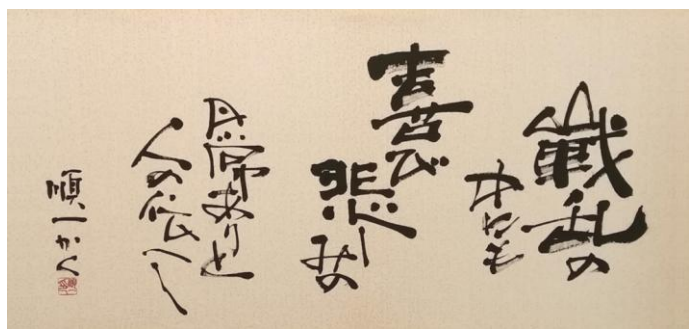 戦乱の
中にも
喜び
悲しみの
日常ありと
人の伝へし
順一かく